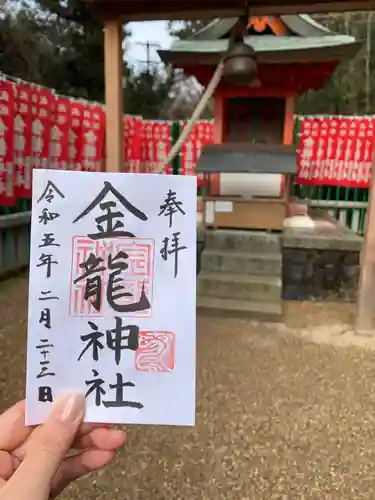 奉拝
金龍神社
令和五年二月二十三日